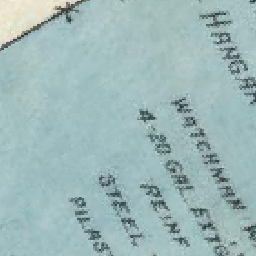 HANGAR
WATCHMAN
4-20 GAL. EXTG
REINF
STEEL
PILAS